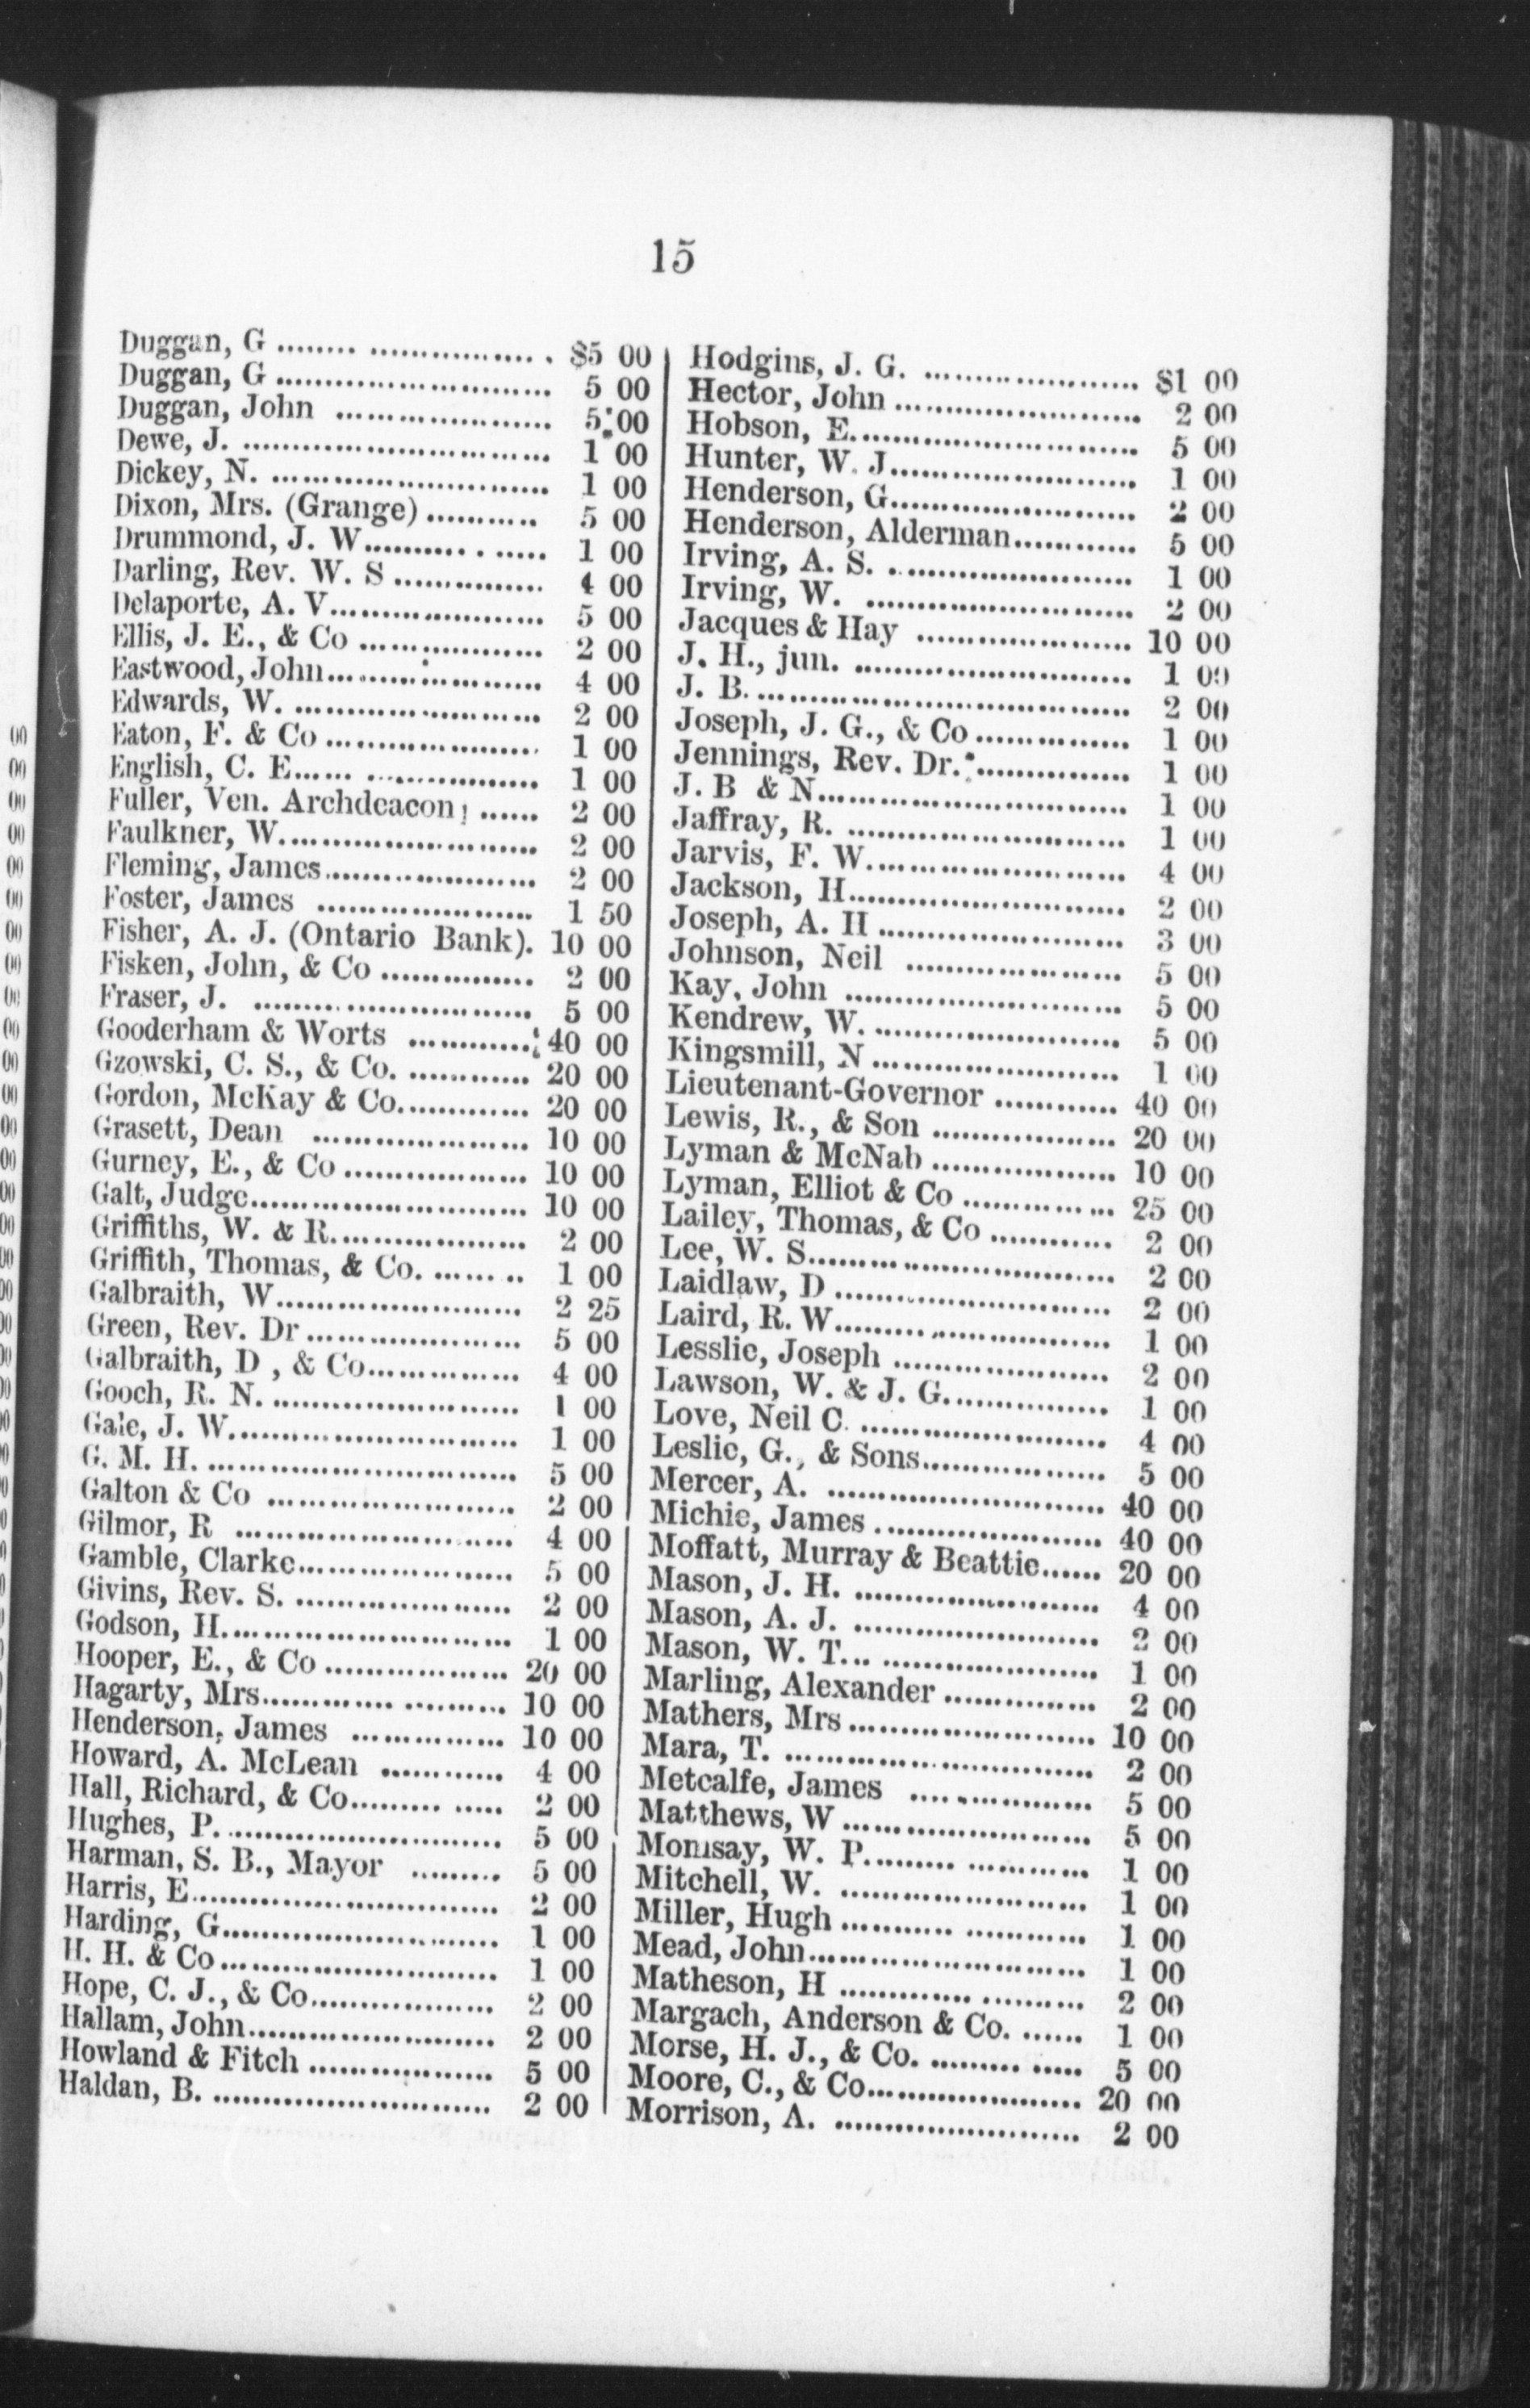 15
Duggan, G ........ ................. . $5 00
Duggan, G ........................... 5 00
Duggan, John ..................... 5 00
Dewe, J. .............................. 1 00
Dickey, N. ........................... 1 00
Dixon, Mrs. (Grange) ........... 5 00
Drummond, J. W.......... . ..... 1 00
Darling, Rev. W. S .............. 4 00
Delaporte, A. V..................... 5 00
Ellis, J. E., & Co .................. 2 00
Eastwood, John..................... 4 00
Edwards, W. ........................ 2 00
Eaton, F. & Co ..................... 1 00
English, C. E...... ................. 1 00
Fuller, Ven. Archdeacon ...... 2 00
Faulkner, W......................... 2 00
Fleming, James..................... 2 00
Foster, James ..................... 1 50
Fisher, A. J. (Ontario Bank). 10 00
Fisken, John, & Co ............... 2 00
Fraser, J. ........................... 5 00
Gooderham & Worts ............ 40 00
Gzowski, C. S., & Co. ............ 20 00
Gordon, McKay & Co............. 20 00
Grasett, Dean ..................... 10 00
Gurney, E., & Co .................. 10 00
Galt, Judge........................... 10 00
Griffiths, W. & R................... 2 00
Griffith, Thomas, & Co. ....... .. 1 00
Galbraith, W........................ 2 25
Green, Rev. Dr ..................... 5 00
Galbraith, D , & Co............... 4 00
Gooch, R. N. ........................ 1 00
Gale, J. W............................ 1 00
G. M. H. .............................. 5 00
Galton & Co ........................ 2 00
Gilmor, R ........................... 4 00
Gamble, Clarke..................... 5 00
Givins, Rev. S. ..................... 2 00
Godson, H............................ 1 00
Hooper, E., & Co .................. 20 00
Hagarty, Mrs............. .......... 10 00
Henderson, James ............... 10 00
Howard, A. McLean ............ 4 00
Hall, Richard, & Co......... ..... 2 00
Hughes, P. ........................... 5 00
Harman, S. B., Mayor ......... 5 00
Harris, E.............................. 2 00
Harding, G........................... 1 00
H. H. & Co ........................... 1 00
Hope, C. J., & Co.................. 2 00
Hallam, John........................ 2 00
Howland & Fitch .................. 5 00
Haldan, B. ........................... 2 00
Hodgins, J. G. ..................... $1 00
Hector, John ........................ 2 00
Hobson, E............................ 5 00
Hunter, W. J........................ 1 00
Henderson, G........................ 2 00
Henderson, Alderman............ 5 00
Irving, A. S. ........................ 1 00
Irving, W. ........................... 2 00
Jacques & Hay ..................... 10 00
J. H., jun. ........................... 1 00
J. B. .................................... 2 00
Joseph, J. G., & Co ............... 1 00
Jennings, Rev. Dr. ............... 1 00
J. B & N.............................. 1 00
Jaffray, R. ........................... 1 00
Jarvis, F. W......................... 4 00
Jackson, H........................... 2 00
Joseph, A. H ........................ 3 00
Johnson, Neil ..................... 5 00
Kay, John ........................... 5 00
Kendrew, W. ........................ 5 00
Kingsmill, N ........................ 1 00
Lieutenant-Governor ............ 40 00
Lewis, R., & Son .................. 20 00
Lyman & McNab .................. 10 00
Lyman, Elliot & Co ............... 25 00
Lailey, Thomas, & Co ............ 2 00
Lee, W. S.............................. 2 00
Laidlaw, D ........................... 2 00
Laird, R. W......... .................. 1 00
Lesslie, Joseph ..................... 2 00
Lawson, W. & J. G................ 1 00
Love, Neil C. ........................ 4 00
Leslie, G., & Sons.................. 5 00
Mercer, A. ........................... 40 00
Michie, James ...................... 40 00
Moffatt, Murray & Beattie...... 20 00
Mason, J. H. ........................ 4 00
Mason, A. J. ........................ 2 00
Mason, W. T... ..................... 1 00
Marling, Alexander ............... 2 00
Mathers, Mrs ........................ 10 00
Mara, T. .............................. 2 00
Metcalfe, James .................. 5 00
Matthews, W ........................ 5 00
Momsay, W. P......... ............ 1 00
Mitchell, W. ........................ 1 00
Miller, Hugh ........... ............ 1 00
Mead, John........................... 1 00
Matheson, H ............. .......... 2 00
Margach, Anderson & Co. ...... 1 00
Morse, H. J., & Co. ......... ..... 5 00
Moore, C., & Co..................... 20 00
Morrison, A. ........................ 2 00